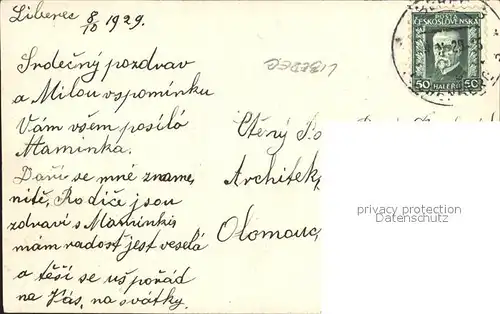 Liberec 8/10 1929.
Srdečný pozdrav
a Milou vspomínku
Vám všem posílá
Maminka.
Daří se mně zname,
nitě, Rodiče jsou
zdraví s Maminkú,
mám radost jest veselá
a těší se už pořád
na Vás, na svátky.
LIBEREC
Ctěný
Architek,
Olomouc,
POŠTA
ČESKOSLOVENSKÁ
50 HALÉŘŮ 50
privacy protection
Datenschutz